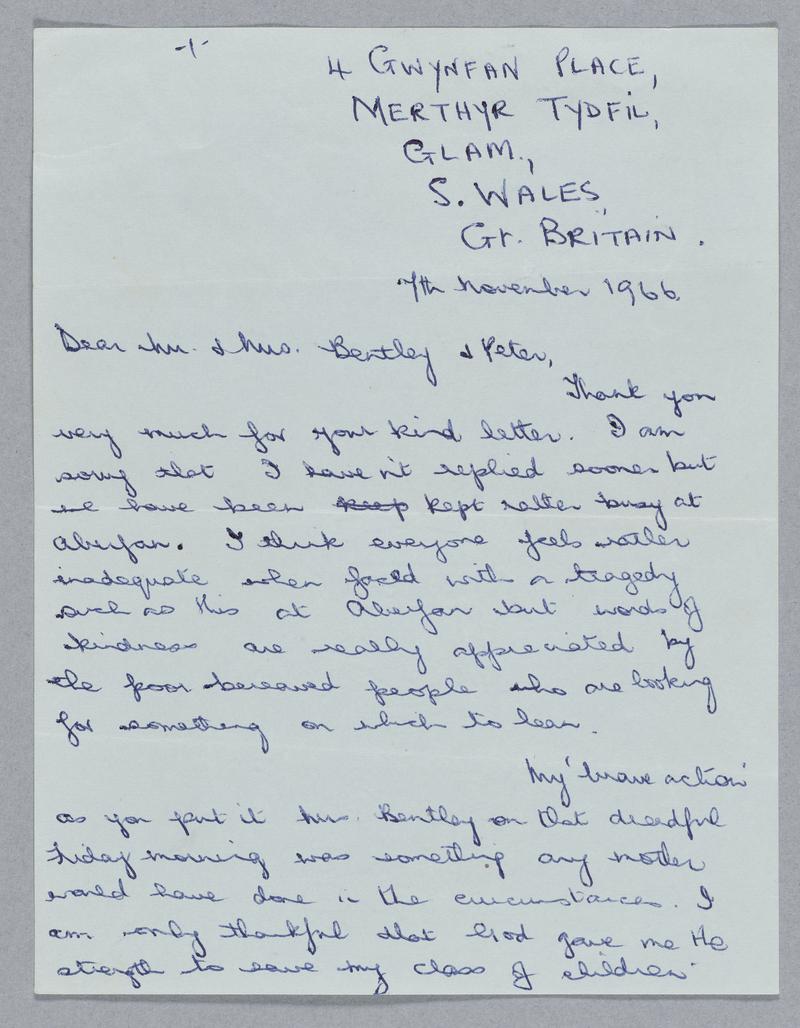 4 GWYNFAN PLACE,
MERTHYR TYDFIL,
GLAM.,
S. WALES,
Gt. BRITAIN.
7th November 1966.
Dear Mr. & Mrs. Bentley & Peter,
Thank you
very much for your kind letter. I am
sorry that I haven't replied sooner but
we have been keep kept rather busy at
Aberfan. I think everyone feels rather
inadequate when faced with a tragedy
such as this at Aberfan but words of
kindness are really appreciated by
the poor bereaved people who are looking
for something on which to lean.
My 'brave action'
as you put it Mrs. Bentley on that dreadful
Friday morning was something any mother
would have done in the circumstances. I
am only thankful that God gave me the
strength to save my class of children